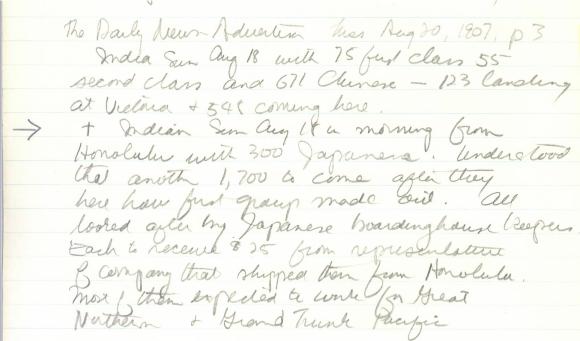 The Daily News-Advertiser Tues Aug 20, 1907, p 3
India Sun Aug 18 with 75 first class 55
second class and 671 Chinese — 123 landing
at Victoria + 548 coming here.
→ + Indian Sun Aug 18 in morning from
Honolulu with 300 Japanese. Understood
that another 1,700 to come after they
here have first group made out. All
looked after by Japanese boardinghouse keepers.
Each to receive $25 from representative
of company that shipped them from Honolulu.
Most of them expected to work for Great
Northern + Grand Trunk Pacific